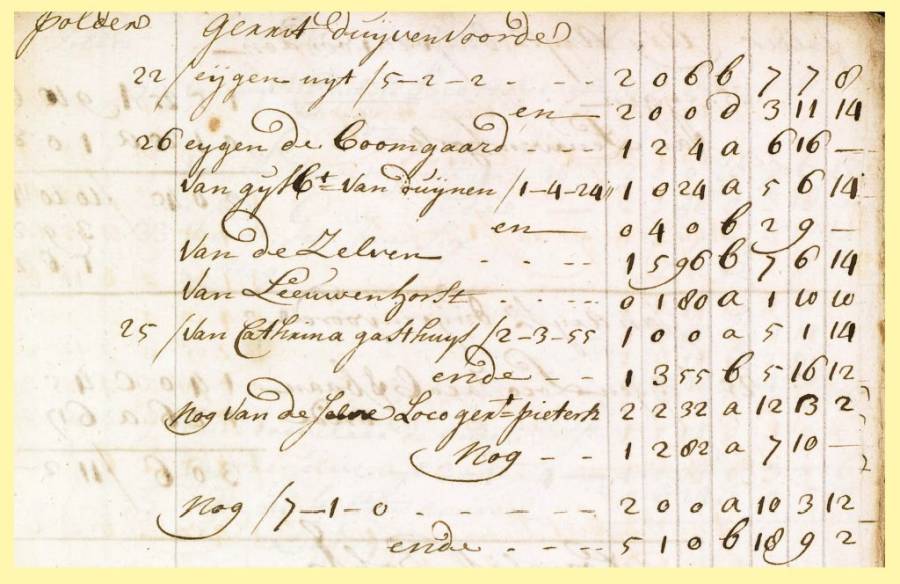 polder Gerrit duijvenvoorde
22 / eijgen uyt / 5-2-2 - - - 2 0 6 b 7 7 8
en 2 0 0 d 3 11 14
26 eygen de Boomgaard - - - 1 2 4 a 6 16 —
Van gysb:t Van duijnen / 1-4-24 1 0 24 a 5 6 14
en 0 4 0 b 2 9 —
Van de Zelven - - - 1 5 96 b 7 6 14
Van Leeuwenhorst - - - 0 1 80 a 1 10 10
25 / Van Cathrina gasthuys / 2-3-55 1 0 0 a 5 1 14
ende - - 1 3 55 b 5 16 12
Nog Van de Loco ger:t pieters 2 2 32 a 12 13 2
Nog - - 1 2 82 a 7 10 —
Nog / 7-1-0 - - - - - 2 0 0 a 10 3 12
ende - - - 5 1 0 b 18 9 2